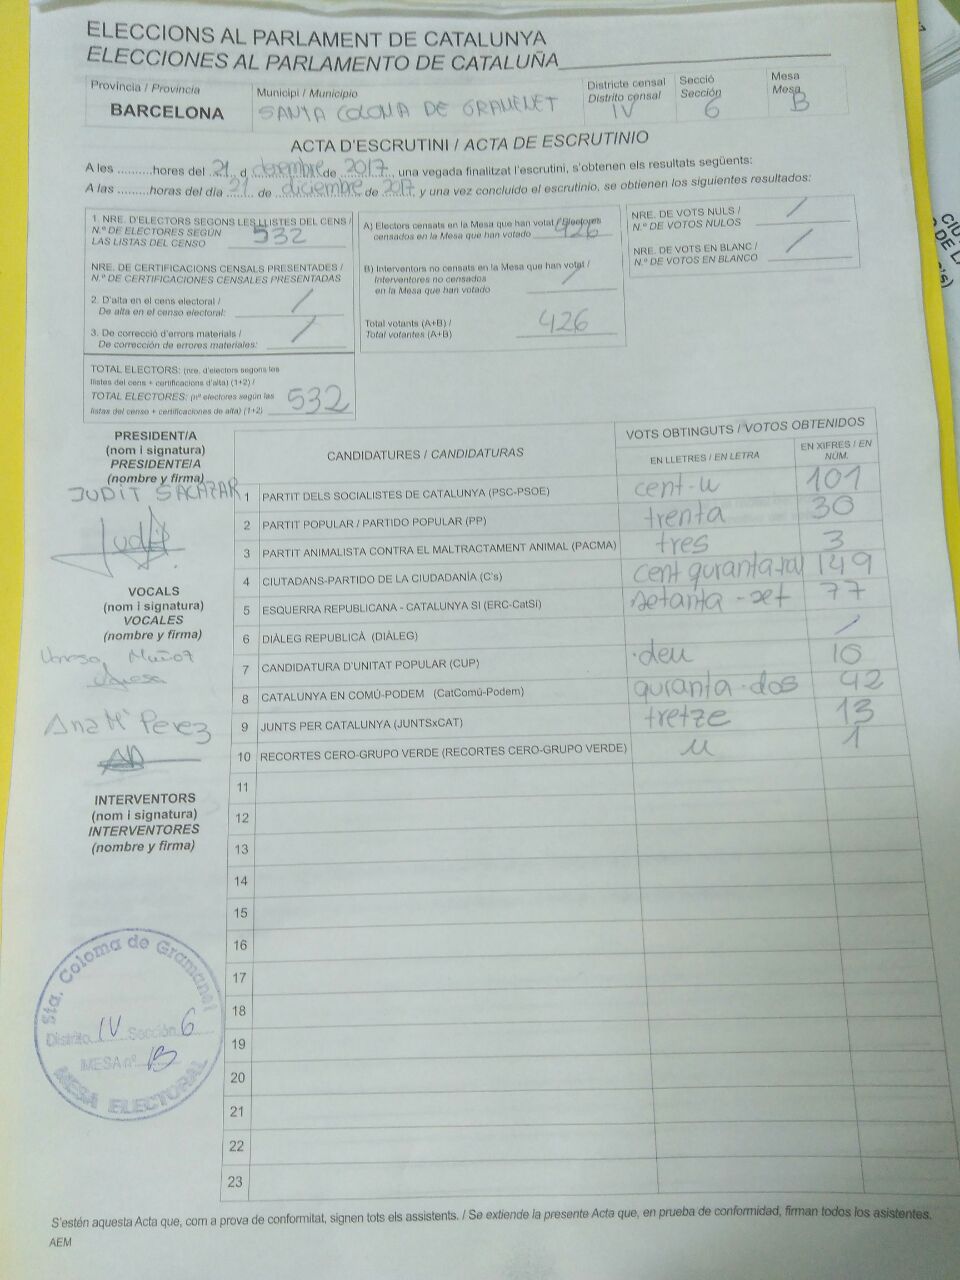 ELECCIONS AL PARLAMENT DE CATALUNYA
ELECCIONES AL PARLAMENTO DE CATALUÑA
Província / Provincia
BARCELONA
Municipi / Municipio
SANTA COLOMA DE GRAMENET
Districte censal
Distrito censal
IV
Secció
Sección
6
Mesa
Mesa
B
ACTA D'ESCRUTINI / ACTA DE ESCRUTINIO
A les ..........hores del 21 d desembre de 2017, una vegada finalitzat l'escrutini, s'obtenen els resultats següents:
A las ..........horas del día 21 de diciembre de 2017 y una vez concluido el escrutinio, se obtienen los siguientes resultados:
1. NRE. D'ELECTORS SEGONS LES LLISTES DEL CENS /
N.º DE ELECTORES SEGÚN
LAS LISTAS DEL CENSO 532
NRE. DE CERTIFICACIONS CENSALS PRESENTADES /
N.º DE CERTIFICACIONES CENSALES PRESENTADAS
2. D'alta en el cens electoral /
De alta en el censo electoral: /
3. De correcció d'errors materials /
De corrección de errores materiales: /
TOTAL ELECTORS: (nre. d'electors segons les
llistes del cens + certificacions d'alta) (1+2) /
TOTAL ELECTORES: (nº electores según las
listas del censo + certificaciones de alta) (1+2) 532
A) Electors censats en la Mesa que han votat / Electores
censados en la Mesa que han votado 426
B) Interventors no censats en la Mesa que han votat /
Interventores no censados
en la Mesa que han votado /
Total votants (A+B) /
Total votantes (A+B) 426
NRE. DE VOTS NULS /
N.º DE VOTOS NULOS /
NRE. DE VOTS EN BLANC /
N.º DE VOTOS EN BLANCO /
PRESIDENT/A
(nom i signatura)
PRESIDENTE/A
(nombre y firma)
JUDIT SALAZAR
Judit
VOCALS
(nom i signatura)
VOCALES
(nombre y firma)
Vanesa Muñoz
Vanesa
Ana Mª Perez
INTERVENTORS
(nom i signatura)
INTERVENTORES
(nombre y firma)
CANDIDATURES / CANDIDATURAS
VOTS OBTINGUTS / VOTOS OBTENIDOS
EN LLETRES / EN LETRA
EN XIFRES / EN NÚM.
1 PARTIT DELS SOCIALISTES DE CATALUNYA (PSC-PSOE) cent-u 101
2 PARTIT POPULAR / PARTIDO POPULAR (PP) trenta 30
3 PARTIT ANIMALISTA CONTRA EL MALTRACTAMENT ANIMAL (PACMA) tres 3
4 CIUTADANS-PARTIDO DE LA CIUDADANÍA (C's) cent quranta 149
5 ESQUERRA REPUBLICANA - CATALUNYA SI (ERC-CatSí) setanta-set 77
6 DIÀLEG REPUBLICÀ (DIÀLEG) /
7 CANDIDATURA D'UNITAT POPULAR (CUP) deu 10
8 CATALUNYA EN COMÚ-PODEM (CatComú-Podem) quranta-dos 42
9 JUNTS PER CATALUNYA (JUNTSxCAT) tretze 13
10 RECORTES CERO-GRUPO VERDE (RECORTES CERO-GRUPO VERDE) u 1
11
12
13
14
15
16
17
18
19
20
21
22
23
Sta. Coloma de Gramanet
Distrito IV Sección 6
MESA nº B
MESA ELECTORAL
S'estén aquesta Acta que, com a prova de conformitat, signen tots els assistents. / Se extiende la presente Acta que, en prueba de conformidad, firman todos los asistentes.
AEM